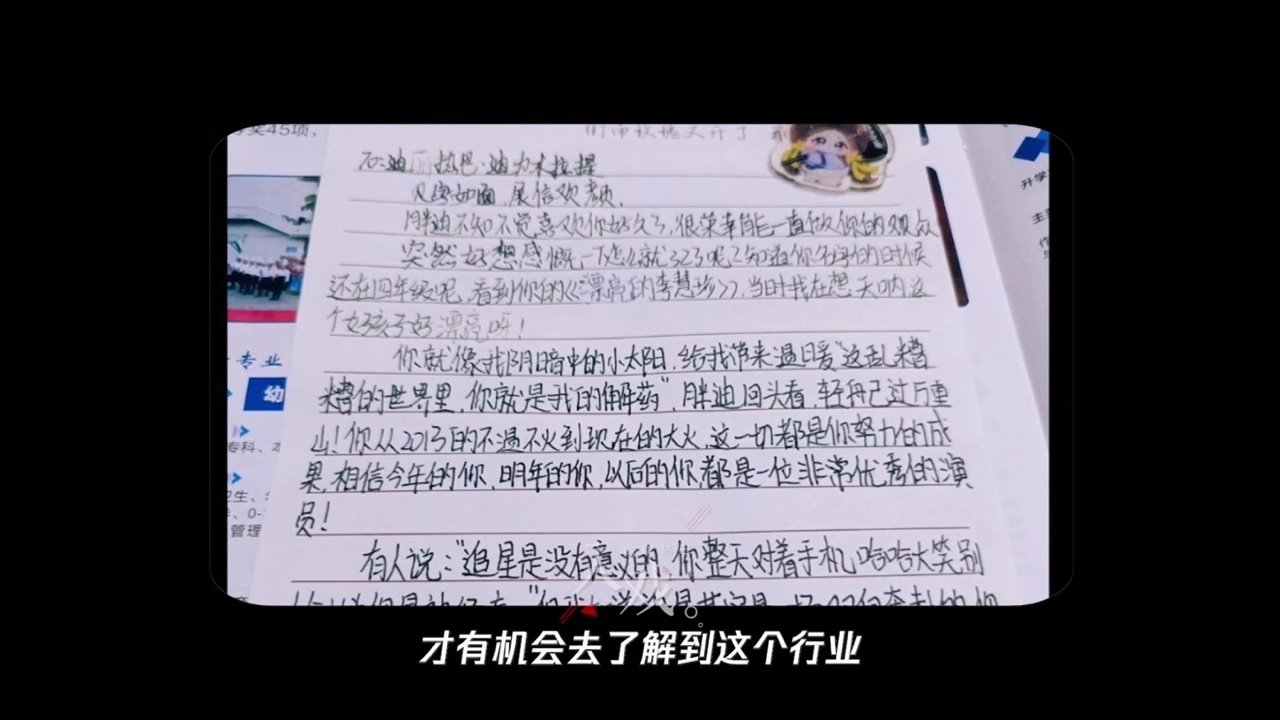 奖45项,
升学
To:迪丽热巴·迪力木拉提
见字如面,展信欢颜,
胖迪不知不觉喜欢你好久了,很荣幸能一直做你的观众
突然好想感慨一下怎么就323呢?知道你名字的时候
还在四年级呢,看到你的《漂亮的李慧珍》,当时我在想天呐这
个女孩子好漂亮呀!
你就像我阴暗中的小太阳,给我带来温暖"这乱糟
糟的世界里,你就是我的解药",胖迪回头看,轻舟已过万重
山!你从2013的不温不火到现在的大火,这一切都是你努力的成
果,相信今年的你,明年的你,以后的你,都是一位非常优秀的演
员!
有人说:"追星是没有意义的,你整天对着手机哈哈大笑别
专业
幼
专科、
卫生、
管理
才有机会去了解到这个行业